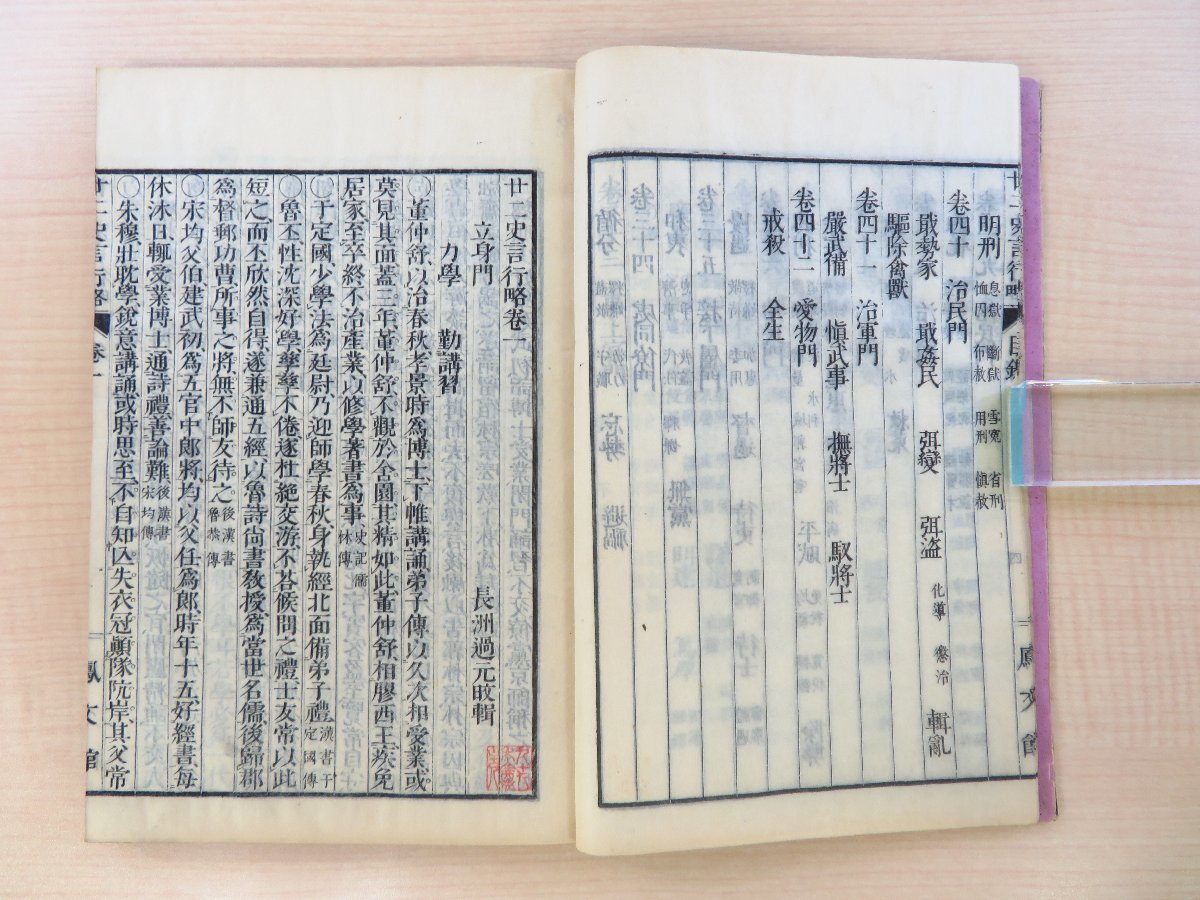 明刑 息獄 斷獄 雪冤 省刑 恤囚 布赦 用刑 慎赦
卷四十 治民門
戢勢家 戢姦民 弭變 弭盜 化導 懲治 輯亂
驅除禽獸
卷四十一 治軍門
嚴武備 愼武事 撫將士 馭將士
卷四十二 愛物門
戒殺 全生
鳳文館
廿二史言行略卷一
立身門 長洲過元旼輯
力學 勤講習
○董仲舒以治春秋孝景時爲博士下帷講誦弟子傳以久次相受業或
莫見其面蓋三年董仲舒不觀於舍園其精如此董仲舒相膠西王疾免
居家至卒終不治產業以修學著書爲事 史記儒林傳
○于定國少學法爲廷尉乃迎師學春秋身執經北面備弟子禮 漢書于定國傳
○魯丕性沈深好學孳孳不倦遂杜絕交游不荅候問之禮士友常以此
短之而丕欣然自得遂兼通五經以魯詩尙書敎授爲當世名儒後歸郡
爲督郵功曹所事之將無不師友待之 後漢書魯恭傳
○宋均父伯建武初爲五官中郎將均以父任爲郞時年十五好經書每
休沐日輒受業博士通詩禮善論難 後漢書宋均傳
○朱穆壯耽學銳意講誦或時思至不自知亾失衣冠顚隊阬岸其父常
廿二史言行略 卷一 鳳文館